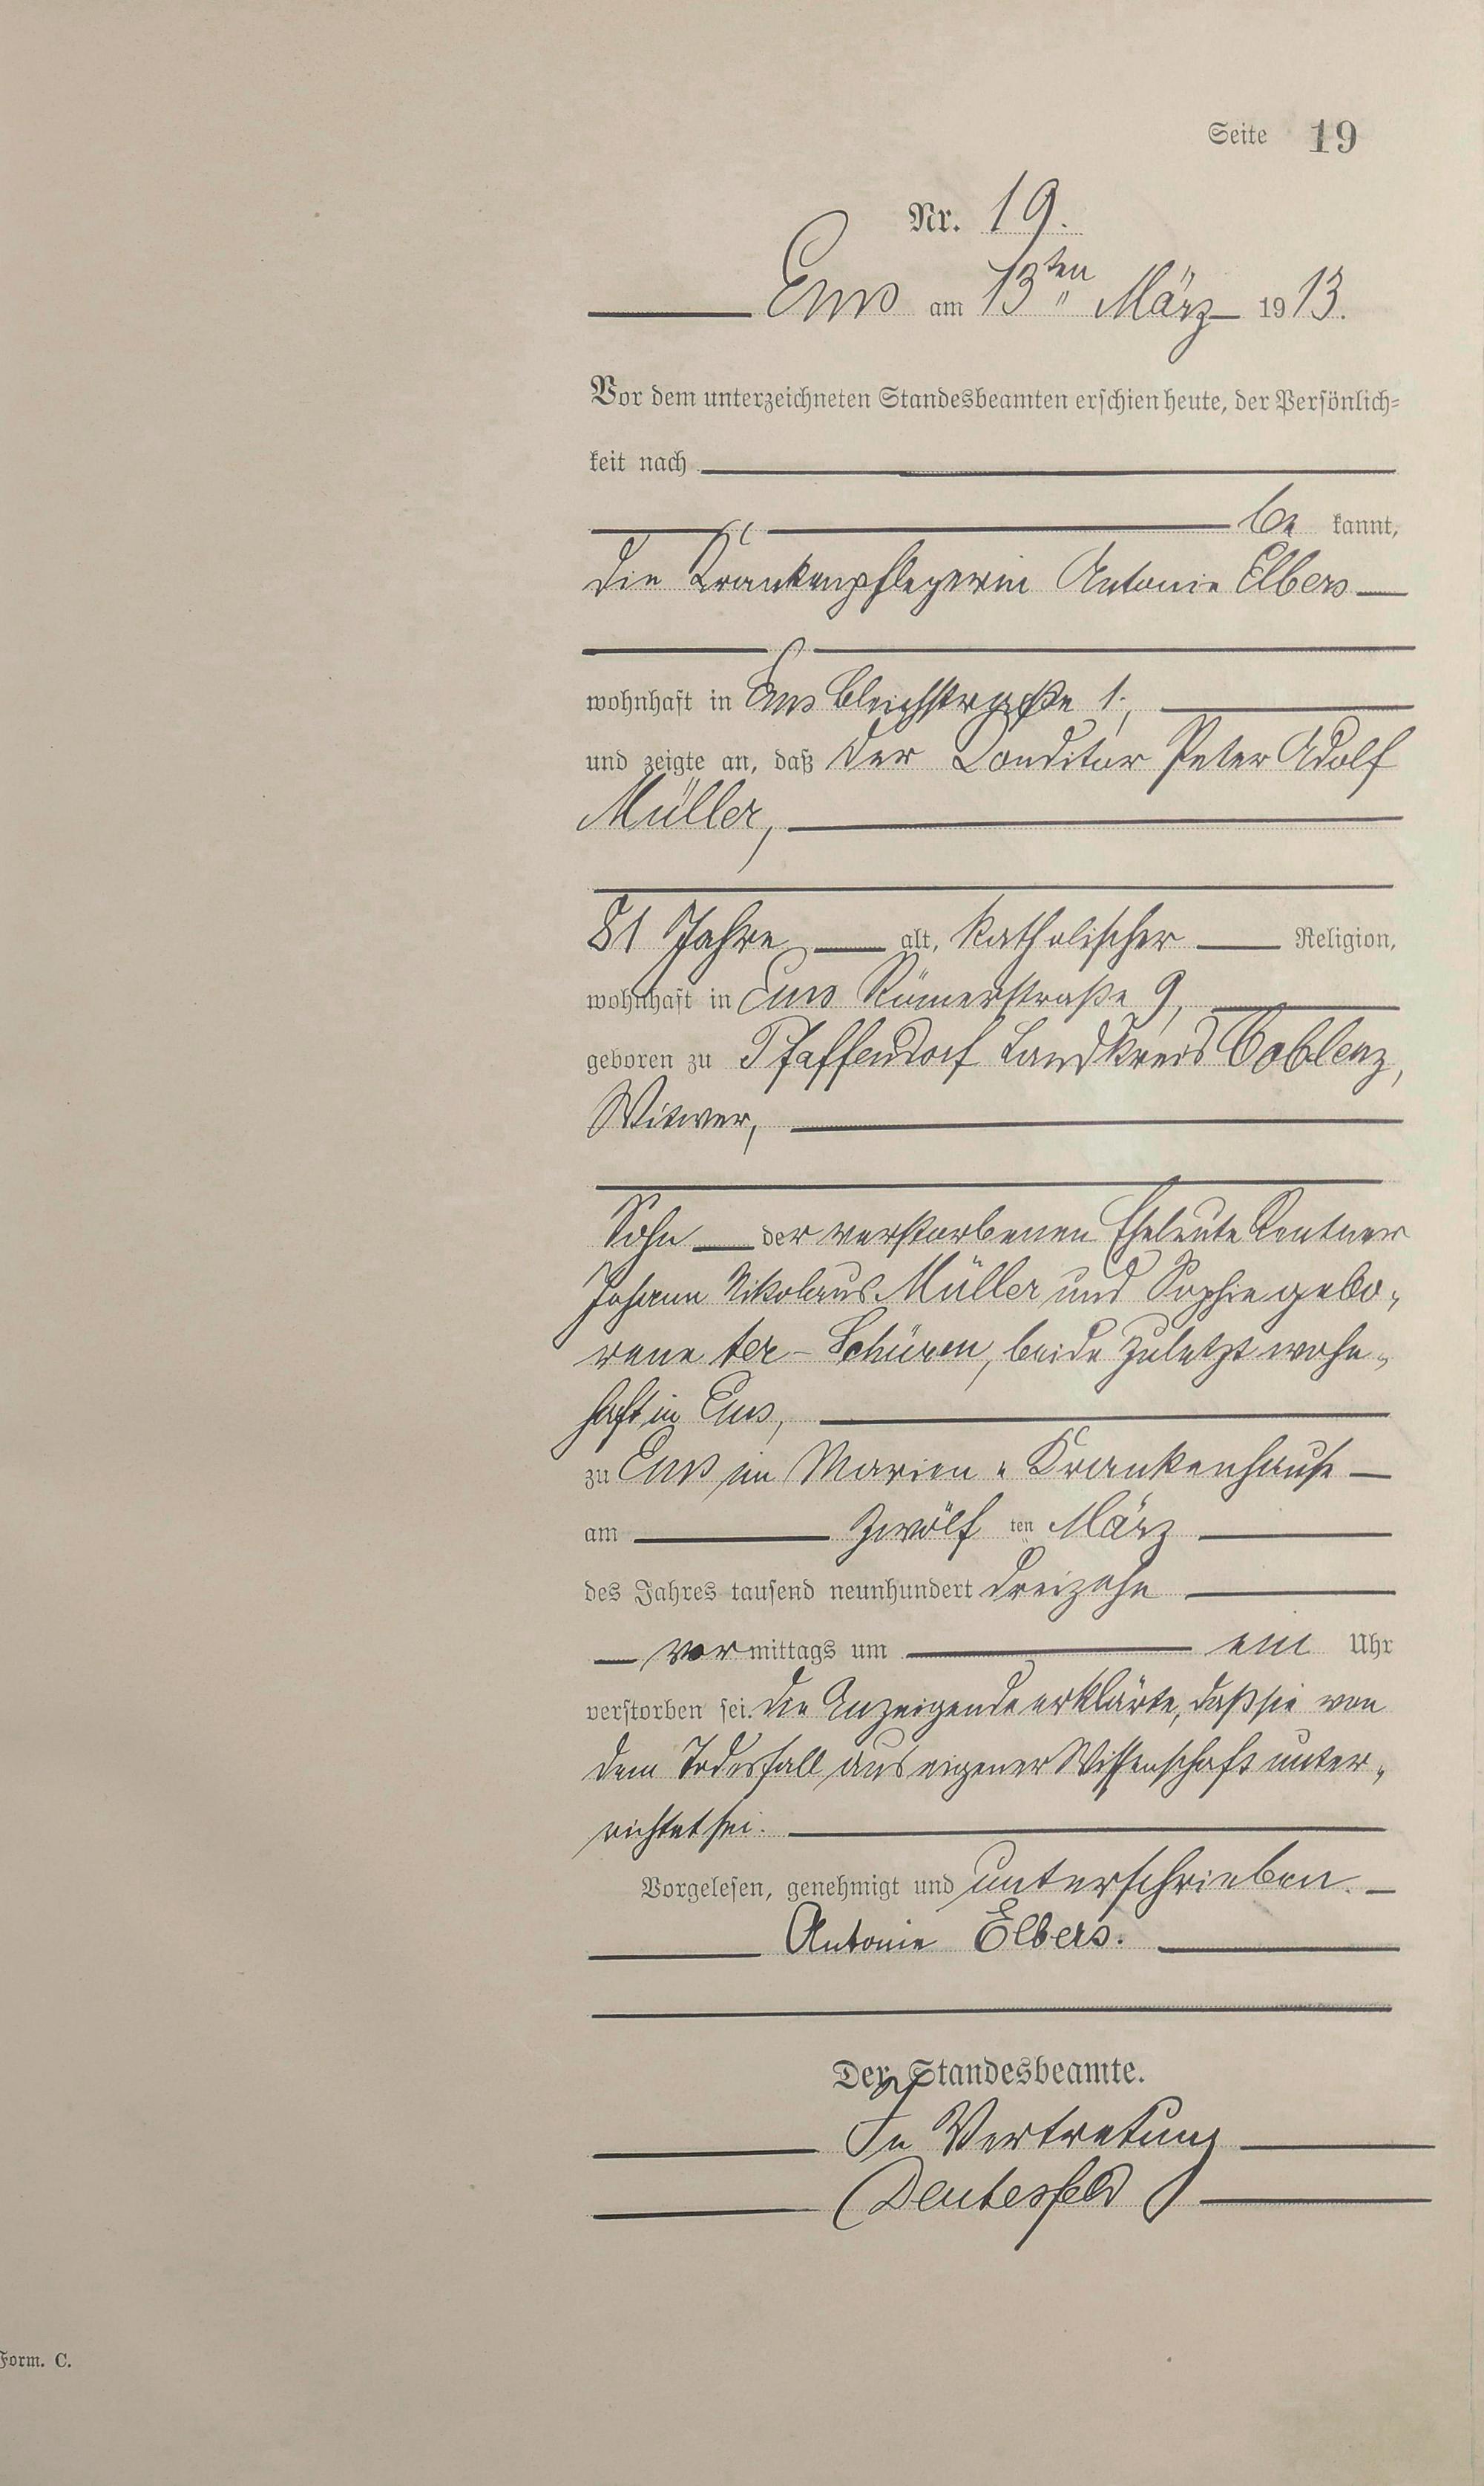 Seite 19
Nr. 19.
Ems am 13ten März 1913.
Vor dem unterzeichneten Standesbeamten erschien heute, der Persönlich-
keit nach
be kannt,
die Krankenpflegerin Antonie Elbers
wohnhaft in Ems Bleichstraße 1.,
und zeigte an, daß der Conditor Peter Adolf
Müller,
81 Jahre alt, katholischer Religion,
wohnhaft in Ems Römerstraße 9,
geboren zu Pfaffendorf Landkreis Coblenz,
Witwer,
Sohn der verstorbenen Eheleute Rentner
Johann Nikolaus Müller und Sophie gebo-
rene ter-Schüren, beide zuletzt wohn-
haft in Ems,
zu Ems im Marien-Krankenhause
am zwölf ten März
des Jahres tausend neunhundert dreizehn
vor mittags um ein Uhr
verstorben sei. Die Anzeigende erklärte, daß sie von
dem Todesfall aus eigener Wissenschaft unter-
richtet sei.
Vorgelesen, genehmigt und unterschrieben.
Antonie Elbers.
Der Standesbeamte.
In Vertretung
Form. C.